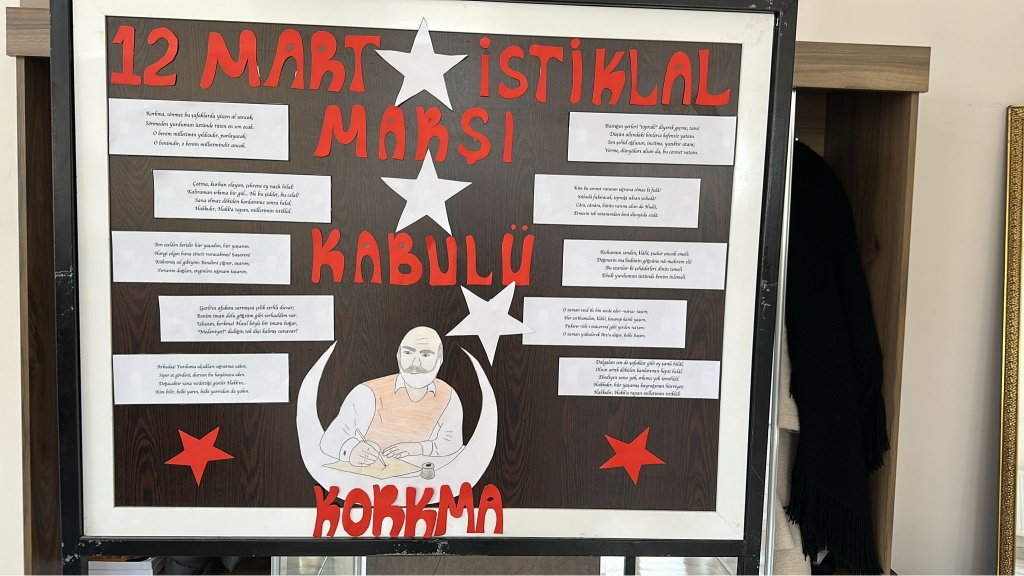 12 MART İSTİKLAL
MARŞI
KABULÜ
Korkma, sönmez bu şafaklarda yüzen al sancak;
Sönmeden yurdumun üstünde tüten en son ocak.
O benim milletimin yıldızıdır, parlayacak;
O benimdir, o benim milletimindir ancak.
Çatma, kurban olayım, çehreni ey nazlı hilal!
Kahraman ırkıma bir gül... Ne bu şiddet, bu celal?
Sana olmaz dökülen kanlarımız sonra helal;
Hakkıdır, Hakk'a tapan, milletimin istiklal.
Ben ezelden beridir hür yaşadım, hür yaşarım.
Hangi çılgın bana zincir vuracakmış? Şaşarım!
Kükremiş sel gibiyim: Bendimi çiğner, aşarım;
Yırtarım dağları, enginlere sığmam taşarım.
Garb'ın afakını sarmışsa çelik zırhlı duvar;
Benim iman dolu göğsüm gibi serhaddim var.
Ulusun, korkma! Nasıl böyle bir imanı boğar,
"Medeniyet!" dediğin tek dişi kalmış canavar?
Arkadaş! Yurduma alçakları uğratma sakın;
Siper et gövdeni, dursun bu hayâsızca akın.
Doğacaktır sana va'dettiği günler Hakk'ın...
Kim bilir, belki yarın, belki yarından da yakın.
Bastığın yerleri "toprak!" diyerek geçme, tanı!
Düşün altındaki binlerce kefensiz yatanı.
Sen şehid oğlusun, incitme, yazıktır atanı;
Verme, dünyâları alsan da, bu cennet vatanı.
Kim bu cennet vatanın uğruna olmaz ki fedâ?
Şühedâ fışkıracak, toprağı sıksan şühedâ!
Cânı, cânânı, bütün varımı alsın da Hudâ,
Etmesin tek vatanımdan beni dünyâda cüdâ.
Ruhumun senden, İlâhî, şudur ancak emeli:
Değmesin ma'bedimin göğsüne nâ-mahrem eli!
Bu ezanlar-ki şehâdetleri dinin temeli
Ebedî yurdumun üstünde benim inlemeli
O zaman vecd ile bin secde eder -varsa- taşım;
Her cerîhamdan, İlâhî, boşanıp kanlı yaşım,
Fışkırır rûh-i mücerred gibi yerden na'şım;
O zaman yükselerek Arş'a değer, belki başım.
Dalgalan sen de şafaklar gibi ey şanlı hilâl;
Olsun artık dökülen kanlarımın hepsi helâl.
Ebediyen sana yok, ırkıma yok izmihlâl:
Hakkıdır, hür yaşamış bayrağımın hürriyet;
Hakkıdır, Hakk'a tapan milletimin istiklâl!
KORKMA